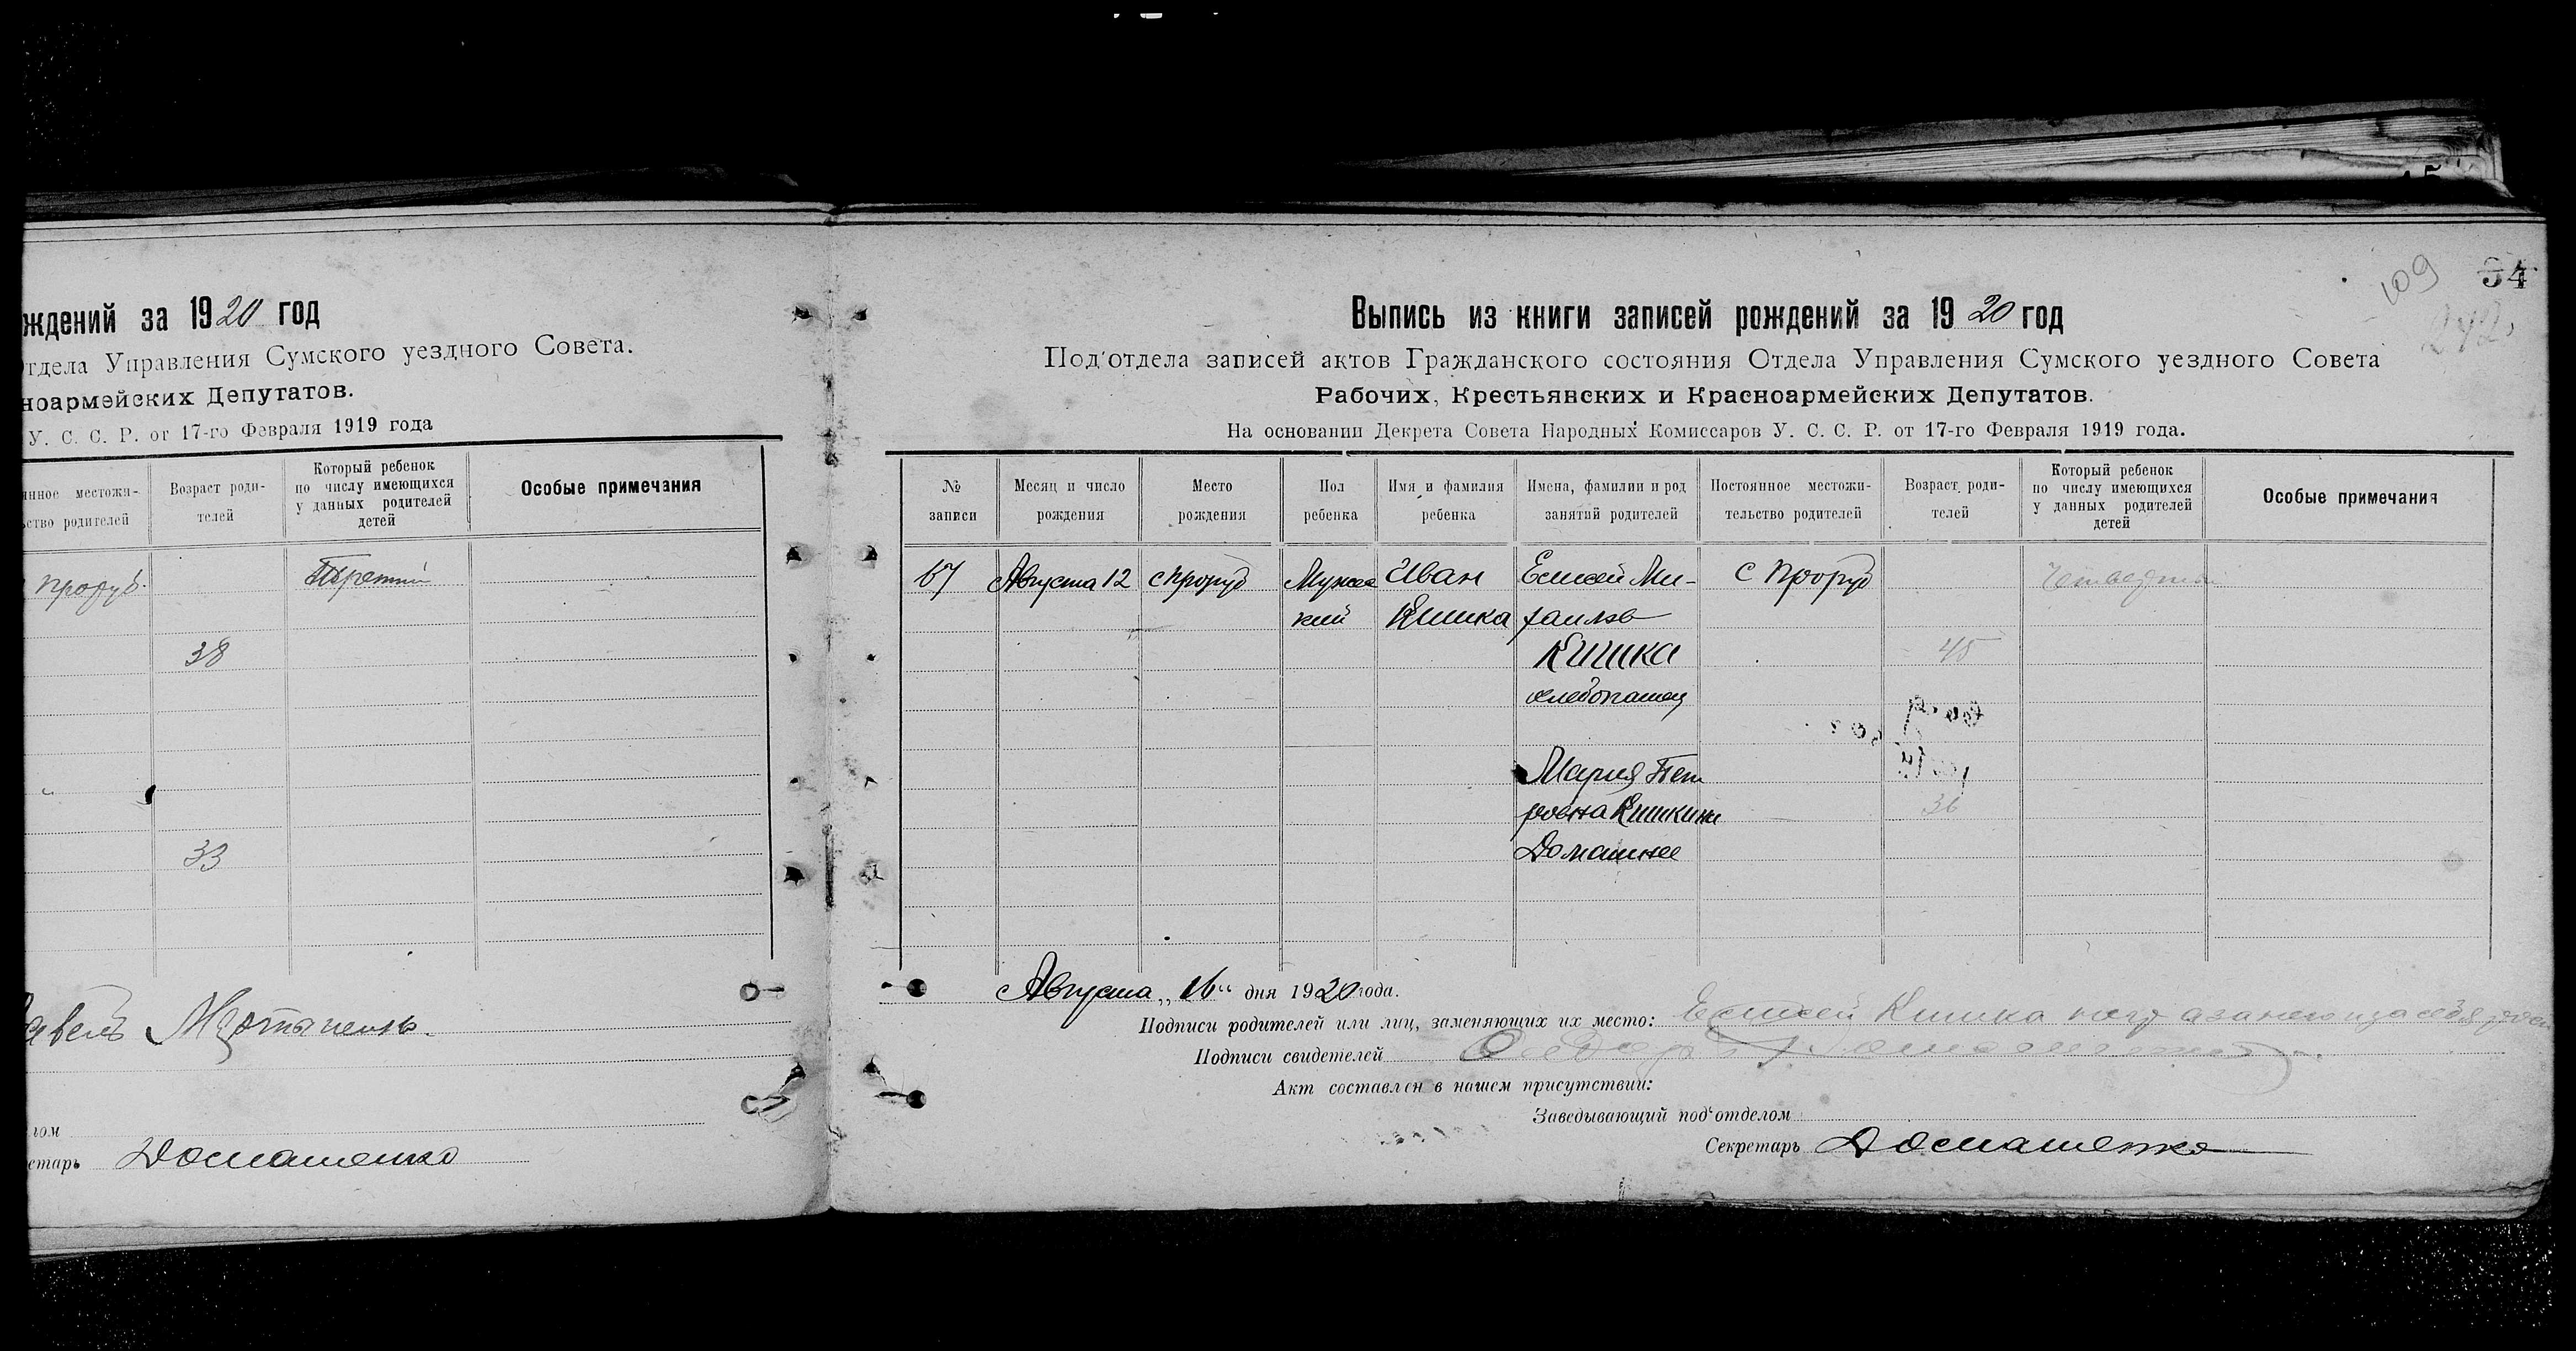 ждений за 1920 год
отдела Управления Сумского уездного Совета.
ноармейских Депутатов.
У. С. С. Р. от 17-го Февраля 1919 года
янное местожи-
ьство родителей
Возраст роди-
телей
Который ребенок
по числу имеющихся
у данных родителей
детей
Особые примечания
Проруб.
Третий
38
33
авел
ом
етарь Домашенко
109
54
242
Выпись из книги записей рождений за 1920 год
Под'отдела записей актов Гражданского состояния Отдела Управления Сумского уездного Совета
Рабочих, Крестьянских и Красноармейских Депутатов.
На основании Декрета Совета Народных Комиссаров У. С. С. Р. от 17-го Февраля 1919 года.
№
записи
Месяц и число
рождения
Место
рождения
Пол
ребенка
Имя и фамилия
ребенка
Имена, фамилии и род
занятий родителей
Постоянное местожи-
тельство родителей
Возраст роди-
телей
Который ребенок
по числу имеющихся
у данных родителей
детей
Особые примечания
67 Августа 12 с Проруб Мужс Иван Елисей Ми- С Проруб Четвертый
кий Кишка хаилов
Кишка 45
хлебопашец
Мария Пет
ровна Кишкина 36
Домашнее
Августа „16“ дня 1920 года.
Подписи родителей или лиц, заменяющих их место: Елисей Кишка
Подписи свидетелей
Акт составлен в нашем присутствии:
Заведывающий под'отделом
Секретарь Домашенко